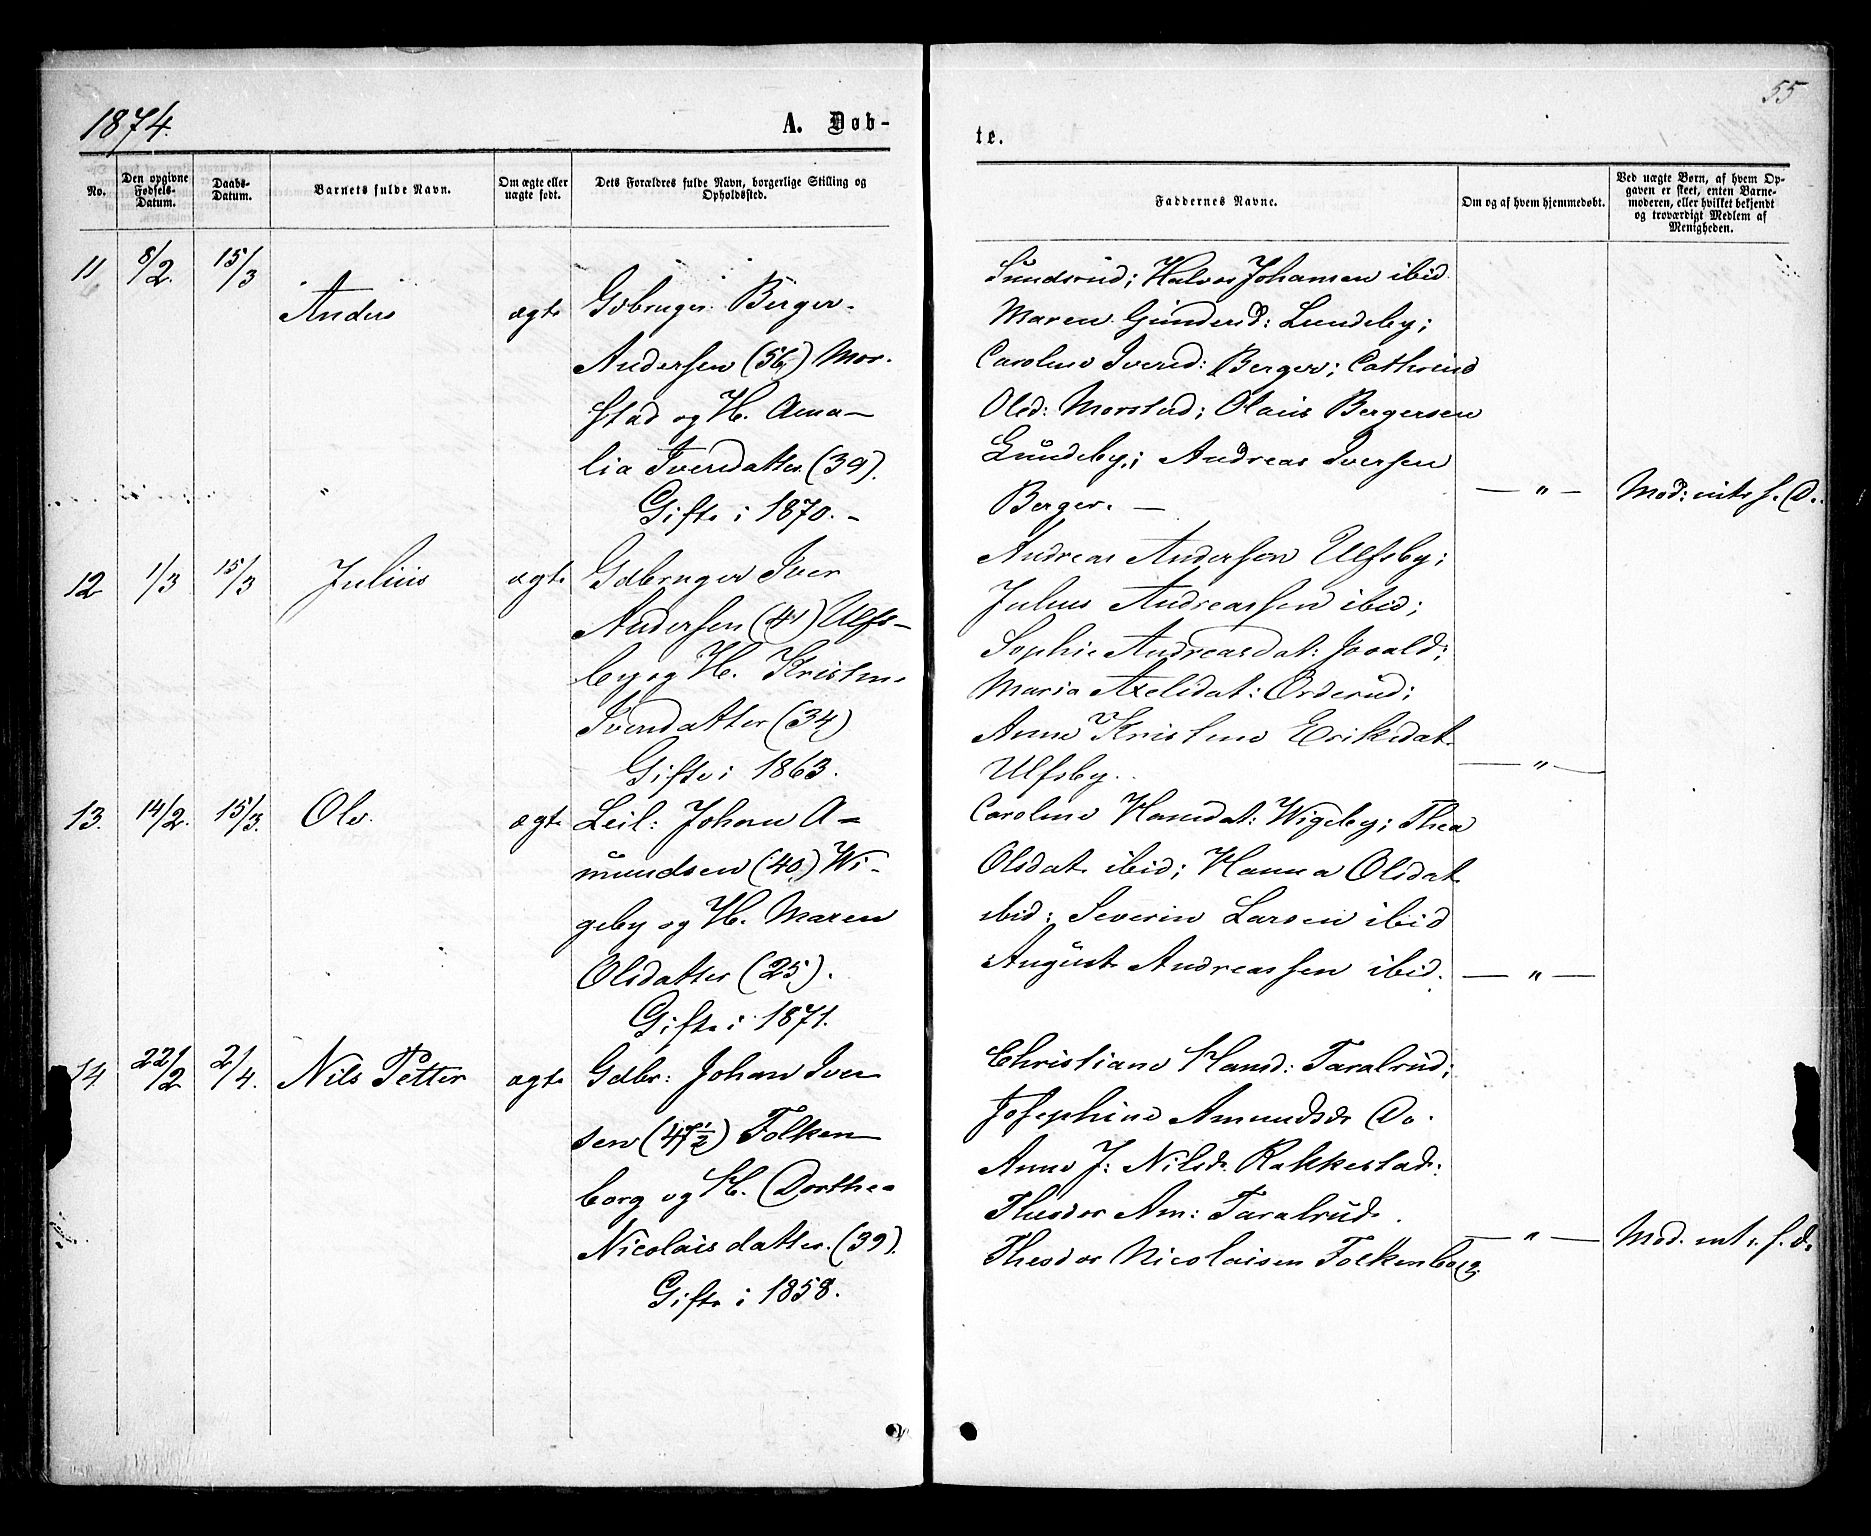 55
1874.
A. Døb-
te.
No.
Den opgivne Fødsels-Datum.
Daabs-Datum.
Barnets fulde Navn.
Om ægte eller uægte født.
Dets Forældres fulde Navn, borgerlige Stilling og Opholdssted.
Faddernes Navne.
Om og af hvem hjemmedøbt.
Ved uægte Børn, af hvem Op-
gaven er skeet, enten Barne-
moderen, eller hvilket bekjendt
og troværdigt Medlem af
Menigheden.
11 8/2. 15/3
Anders ægte Gdbruger Berger
Andersen (56) Mor-
stad og H. Ama-
lia Iversdatter (39).
Gifte i 1870. -
Sundsrud; Halvor Johansen ibid.
Maren Gundersd: Lundeby;
Caroline Iversd: Berger; Cathrine
Olsd: Morstad; Olaus Bergersen
Lundeby; Andreas Iversen
Berger. —
— " — Mod: int. f. D.
12 1/3 15/3 Julius ægte Gdbruger Iver
Andersen (41) Ulfs-
by og H. Kristine
Svendatter (34)
Gifte i 1863.
Andreas Andersen Ulfsby;
Julius Andreassen ibid;
Sophie Andreasdat:
Maria Axelsdat: Orderud;
Anne Kristine Eriksdat.
Ulfsby.
— " —
13. 14/2. 15/3. Ole ægte Leil: Johan A-
mundsen (40) Wi-
geby og H. Maren
Olsdatter (25).
Gifte i 1871.
Caroline Hansdat: Wigeby; Thea
Olsdat. ibid; Hanna Olsdat.
ibid; Severin Larsen ibid
August Andreassen ibid.
— " —
14 22/2 2/4. Nils Petter ægte Gdbr: Johan Iver
sen (47 1/2) Folken
borg og H. Dorthe-
Nicolaisdatter (39).
Gifte i 1858.
Christiane Hansd: Taralrud;
Josephine Amundsd. Do.
Anne J: Nilsd. Rakkestad:
Theodor Am: Taralrud.
Theodor Nicolaisen Folkenborg.
— " — Mod. int. f. D.